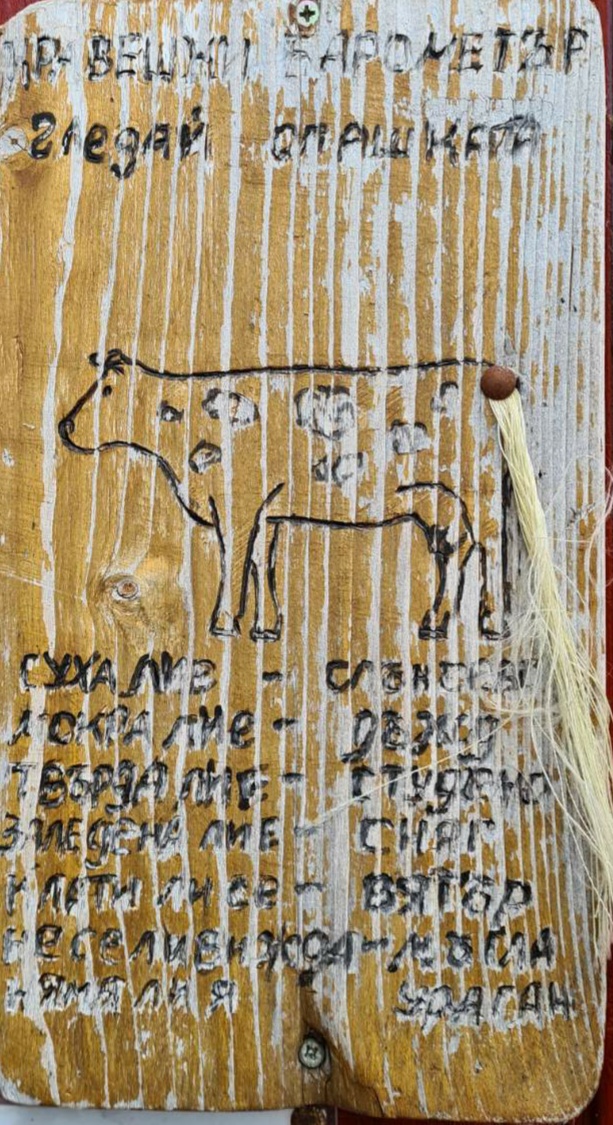 КРАВЕШКИ БАРОМЕТЪР
ГЛЕДАЙ ОПАШКАТА
СУХА ЛИ Е - СЛЪНЧЕВО
МОКРА ЛИ Е - ДЪЖД
ТВЪРДА ЛИ Е - СТУДЕНО
ЗАЛЕДЕНА ЛИ Е - СНЯГ
КЛАТИ ЛИ СЕ - ВЯТЪР
НЕ СЕ ЛИ ВИЖДА - МЪГЛА
НЯМА ЛИ Я УРАГАН